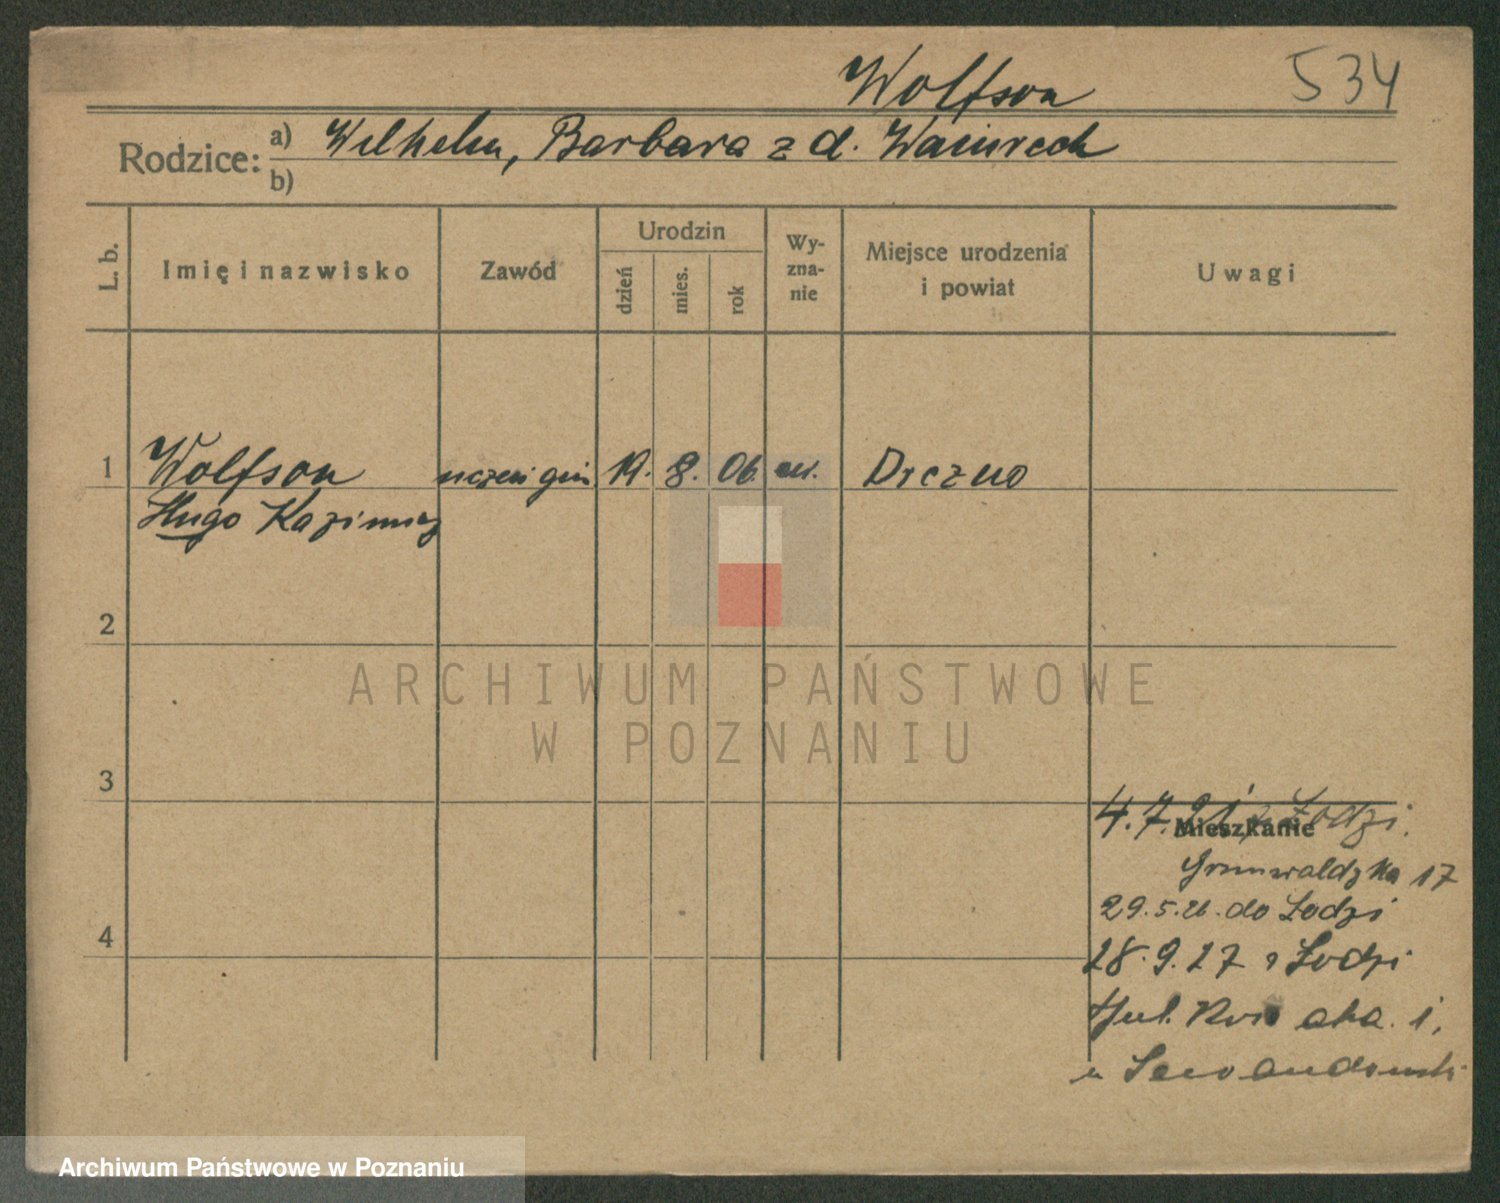 Wolfson
534
Rodzice: a) Wilhelm, Barbara z d.
b)
L. b.
Imię i nazwisko
Zawód
Urodzin
dzień
mies.
rok
Wy-
zna-
nie
Miejsce urodzenia
i powiat
Uwagi
1 Wolfson uczeń gim 19. 8. 06.
Hugo Kazimierz
2
3
4
ARCHIWUM PAŃSTWOWE
W POZNANIU
4.7.21 z Łodzi.
Mieszkanie
Grunwaldzka 17
29.5.26. do Łodzi
28.9.27 z Łodzi
Archiwum Państwowe w Poznaniu